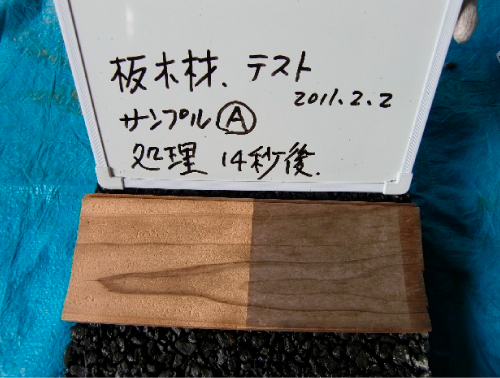 板木材、テスト
2011.2.2
サンプルⒶ
処理 14秒後.